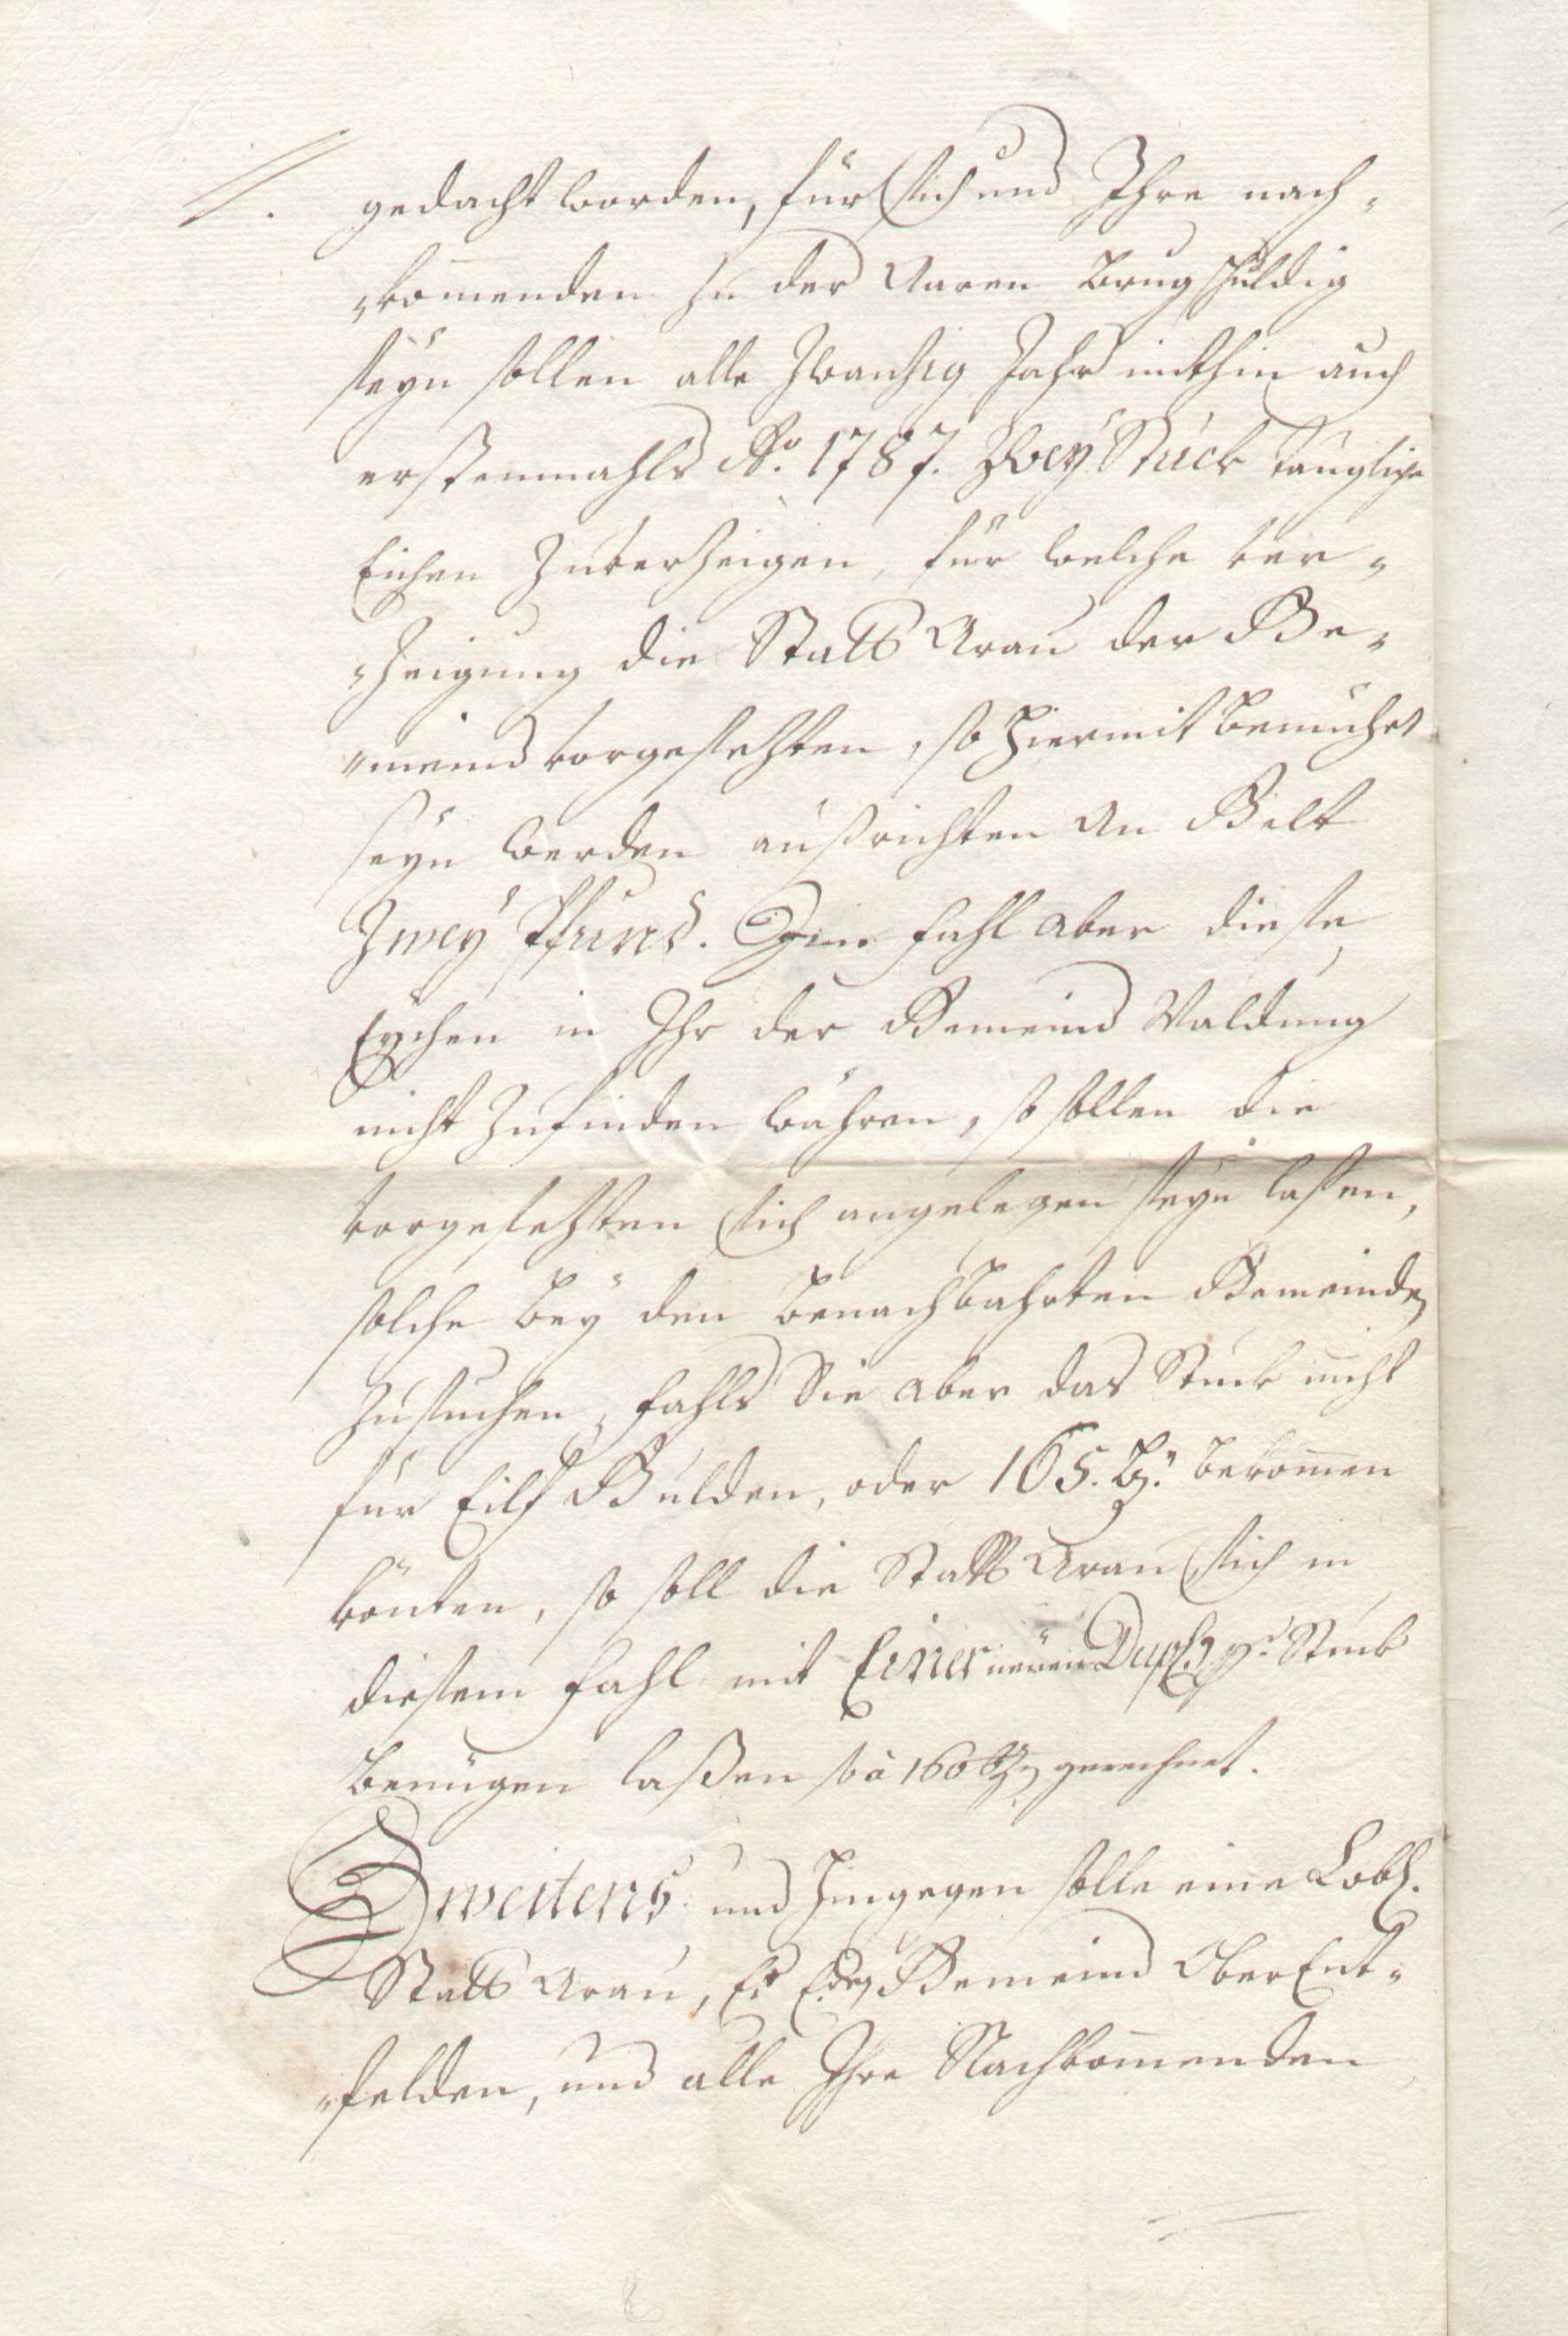 //. gedacht worden, für sich und Ihre nach „
„kom̄enden zu der Aaren Brug schuldig
seyn sollen alle Zwanzig Jahr mithin auch
erstenmahls Aº. 1787. Zwey Stuck taugliche
Eichen Zuverzeigen, für welche ver „
„zeigung die Statt Arau der Ge „
„meind vorgesetzten, so hiermit bemühet
seyn werden außrichten An Gelt
Zwey Pfund. Im fahl aber diese
Eychen in Ihr der Gemeind Waldung
nicht Zufinden währen, so sollen die
vorgesetzten sich angelegen seyn lassen,
solche bey den benachbahrten Gemeinden
Zusuchen, fahls Sie aber das Stuck nicht
für Eilf Gulden, oder 165. Bz. bekom̄en
könten, so soll die Statt Arau sich in
diesem fahl mit Einer neüen Dupl. pr. Stuck
benügen laßen so à 160 Bz gerechnet.
Zweitens und hingegen solle eine Lobl.
Statt Arau, Er E. Gemeind Ober Ent „
„felden, und alle Ihre Nachkom̄enden